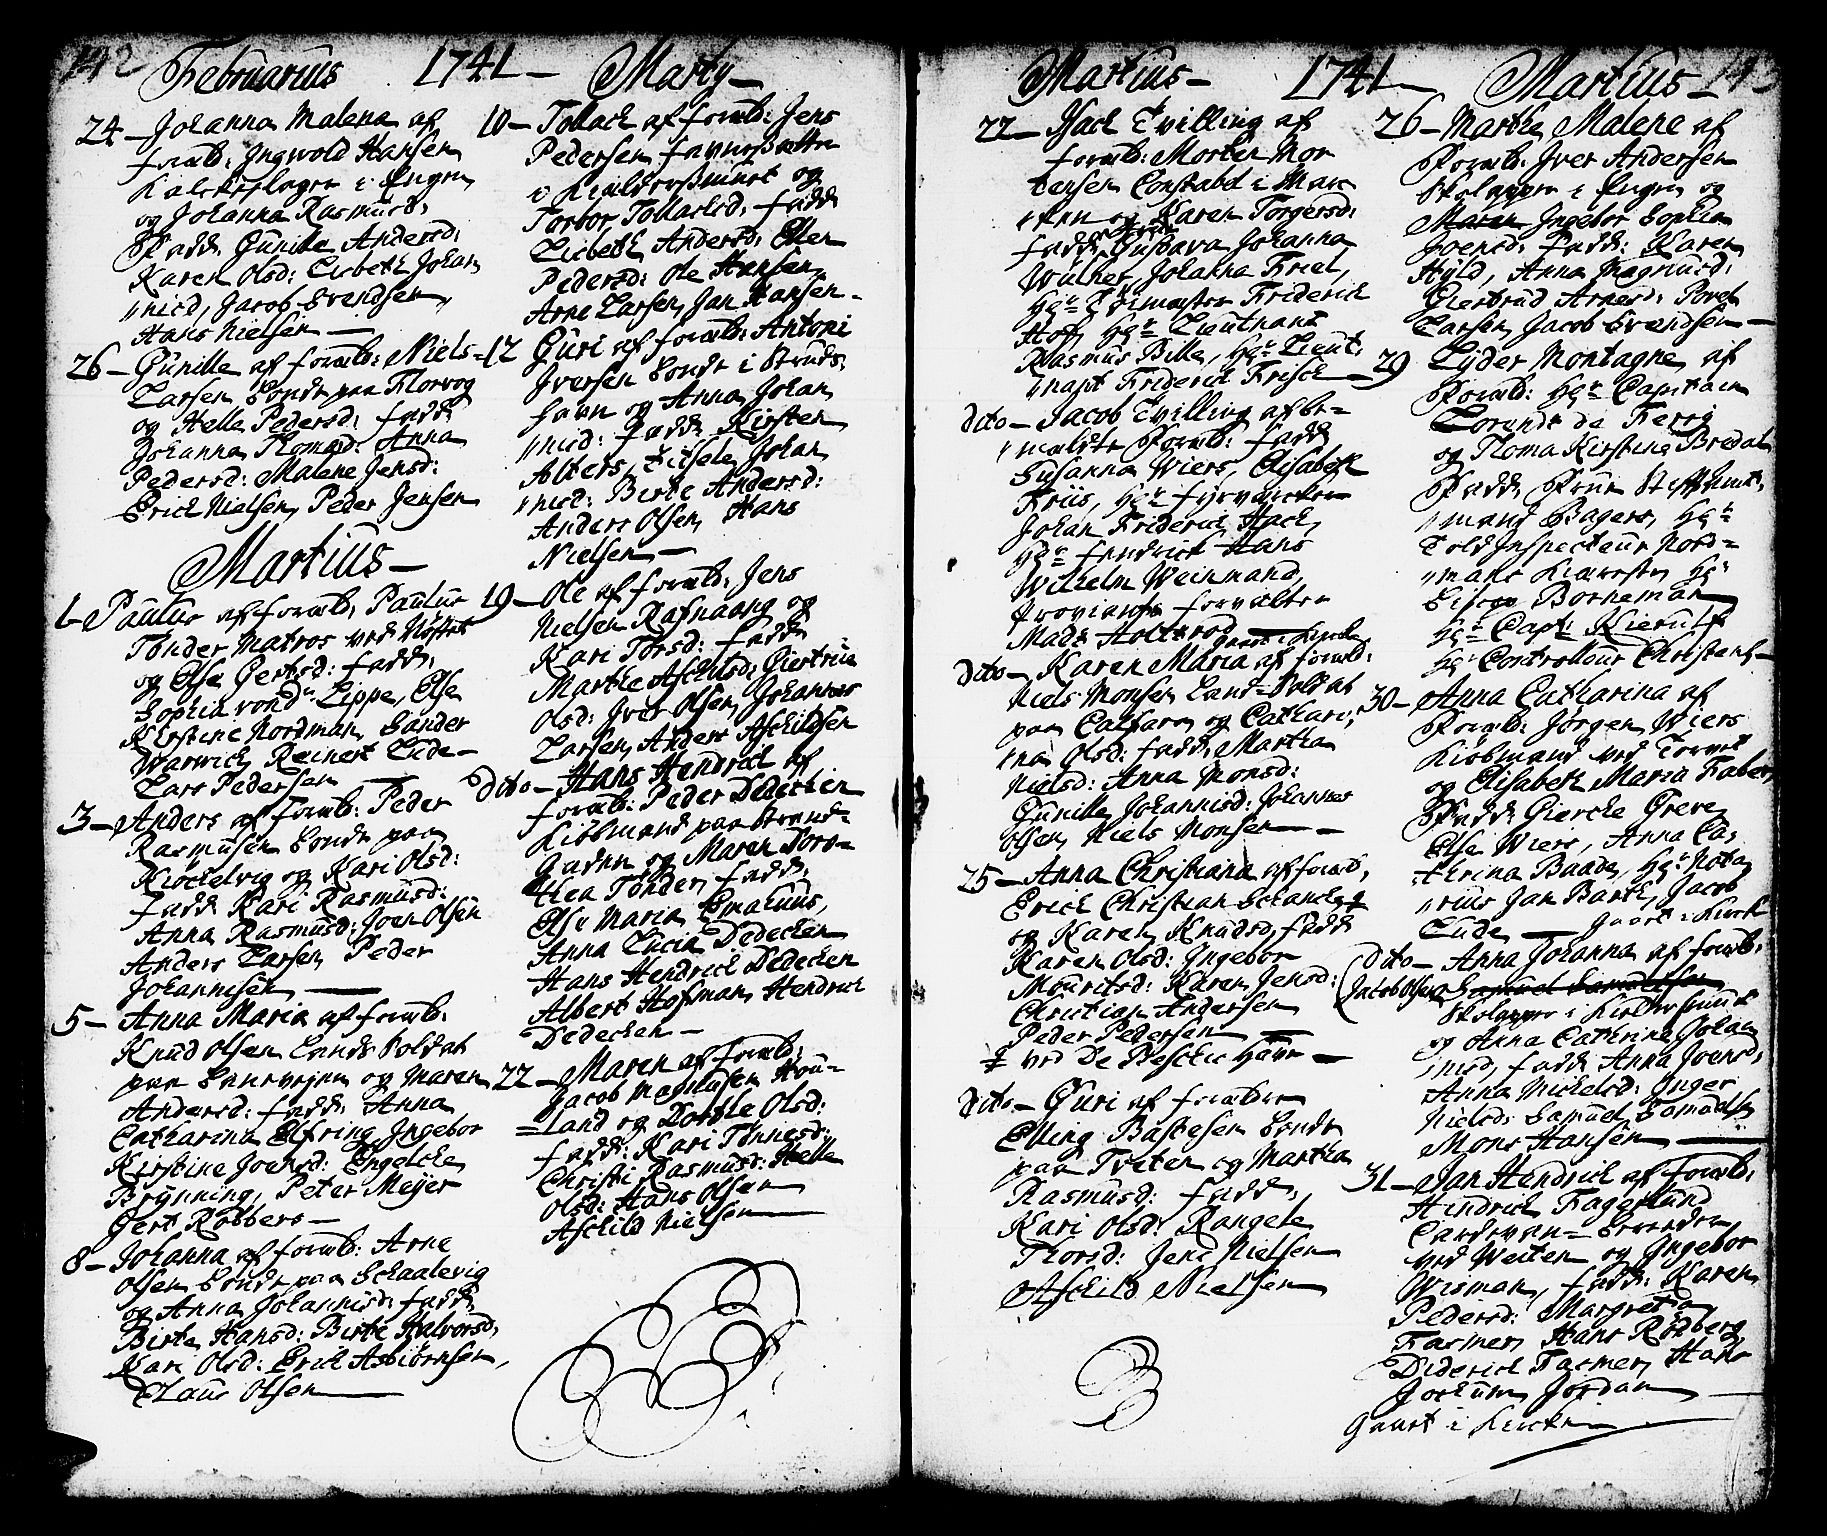 142 Februarius 1741 – Marty –
24 – Johanna Malena af
foræld: Ingwold Hansen
i Engen
og Johanna Rasmusd:
Fadd: Gunilla Andersd:
Karen Olsd: Lisbeth Johan
nisd, Jacob Svendsen,
Hans Nielsen —
26 – Gunille af foræld: Niels
Larsen Bonde paa Florvog
og Helle Pedersd: fadd:
Johanna Thomasd: Anna
Pedersd: Malene Jensd:
Erick Nielsen, Peder Jensen
Martius –
1 – Paulus af foræld: Paulus
Tønder Matros ved Nøstet
og Else Gertsd: fadd:
Sophia vond Lippe, Else
Kirstine Nordman, Sander
Warwich, Reinert Lide –
Lars Pedersen
3 – Anders af foræld: Peder
Rasmusen Bonde paa
Kiockelvig og Kari Olsd:
fadd: Kari Rasmusd:
Anna Rasmusd: Joen Olsen
Anders Larsen, Peder
Johannesen —
5 – Anna Maria af foræld:
Knud Olsen Lands Soldat
paa og Maren
Andersd: fadd: Anna
Catharina Elfring, Ingebor
Kirstine Joensd: Engelcke
Brynning, Peter Meyer
Gert Robbers —
8 – Johanna af foræld: Arne
Olsen Bonde paa Schaalevig
og Anna Johannisd: fadd:
Birte Hansd: Birte Halvorsd,
Kari Olsd: Erick Asbiørnsen,
Claus Olsen —
10 – Tollach af foræld: Jens
Pedersen
i og
Torbor Tollachsd: fadd:
Lisbeth Andersd: Ellen
Pedersd: Ole Hansen,
Arne Larsen, Jan Hansen –
12 Guri af foræld: Antoni
Iversen Bonde i Struds
havn og Anna Johan
nisd: fadd: Kirsten
Alters, Zitsele Johan
nisd: Birte Andersd:
Anders Olsen, Hans
Nielsen —
19 – Ole af foræld: Jens
Nielsen Rafnaang og
Kari Torsd: fadd:
Marthe Aschilsd: Giertrue
Olsd: Iver Olsen, Johannes
Larsen, Anders Aschildsen
Dito – Hans Hendrich af
foræld: Peder Dedechen
Kiøbmand paa Strand-
Gaden og Maren Doro-
thea Tønder, fadd:
Else Maria Emahuus,
Anna Lucia Dedechen
Hans Hendrich Dedechen
Albert Hofman, Hendrich
Dedechen –
22 – Maren af foræld:
Jacob Hou-
land og Dorthe Olsd:
fadd: Kari Tønnesd:
Christi Rasmusd: Helle
Olsd: Hans Olsen
Aschild Nielsen —
Martius – 1741 – Martius – 143
22 – Isach Tvilling af
foræld: Morten Mor
tensen Constabel i Marc
og Karen Torgersd:
fadd: Gustava Johanna
Wulher, Johanna Friel,
Hr: Friderich
Hof, Hr: Lieutnant
Rasmus Bille, Hr: Lieut:
nant Friderich Frisch
dito – Jacob Tvilling af be-
meldte Foræld: fadd:
Susanna Wiers, Elisabeth
Friis, Hr: fyrvercker
Johan Friderich Hach,
Hr: fendrich Hans
Wilhelm Weinmand,
Proviants forvalter
Mads Holterod
dito – Karen Maria af foræld:
Niels Monsen Land-Soldat
paa Calfare og Cathari-
na Olsd: fadd: Martha
Nielsd: Anna Monsd:
Gunille Johannisd: Johannes
Olsen, Niels Monsen —
25 – Anna Christiana af foræld,
Erick Christian Schancke
og Karen Knudsd, fadd:
Karen Olsd: Ingebor
Mouritsd: Karen Jensd:
Christian Andersen
Peder Pedersen —
‡ ved De Haun —
dito – Guri af forældre
Elling Bastesen Bonde
paa Tveten og Martha
Rasmusd: fadd:
Kari Olsd: Rangele
Thorsd: Jens Nielsen
Aschild Nielsen
26 – Marthe Malene af
Foræld: Iver Andersen
i Engen og
Maren Ingebor Sophia
Joensd: Fadd: Karen
Hyld, Anna Magnusd:
Giertrud Arnesd: Povel
Larsen, Jacob Svendsen —
29 Lyder Montagne af
Foræld: Hr: Capitain
Lorentz de Ferry
og Thoma Kirstine Bredal
Fadd: Frue Stifft Amt-
mand Bagers, Hr:
Told Inspecteur Nord-
mans Kiæreste, Hr:
Biscop Borneman
Hr: Capt: Kierulf
Hr: Controlleur Christens –
30 – Anna Catharina af
Foræld: Jørgen Wiers
Kiøbmand ved Torvet
og Elisabeth Maria Faber
Fadd: Giercke Greve,
Else Wiers, Anna Ca-
thrina Baade, Hr: Nota
rius Jan Barth, Jacob
Lude — giort i Kirch
Dito – Anna Johanna af foræld:
(Jacob Olsen Samuel Samuelsen
Skolapper i
og Anna Cathrine Johan
nisd, fadd: Anna Joensd,
Anna Michelsd: Inger
Nielsd: Samuel Samuelsen
Mons Hansen —
31 – Jan Hendrich af foræld:
Hindrich Fagerlund
ved Weiten og Ingebor
Wisman, fadd: Karen
Pedersd: Margreta
Fasmer, Hans Rodberg
Diderich Fasmer, Hans
Jochum Jordan
giort i Kircken